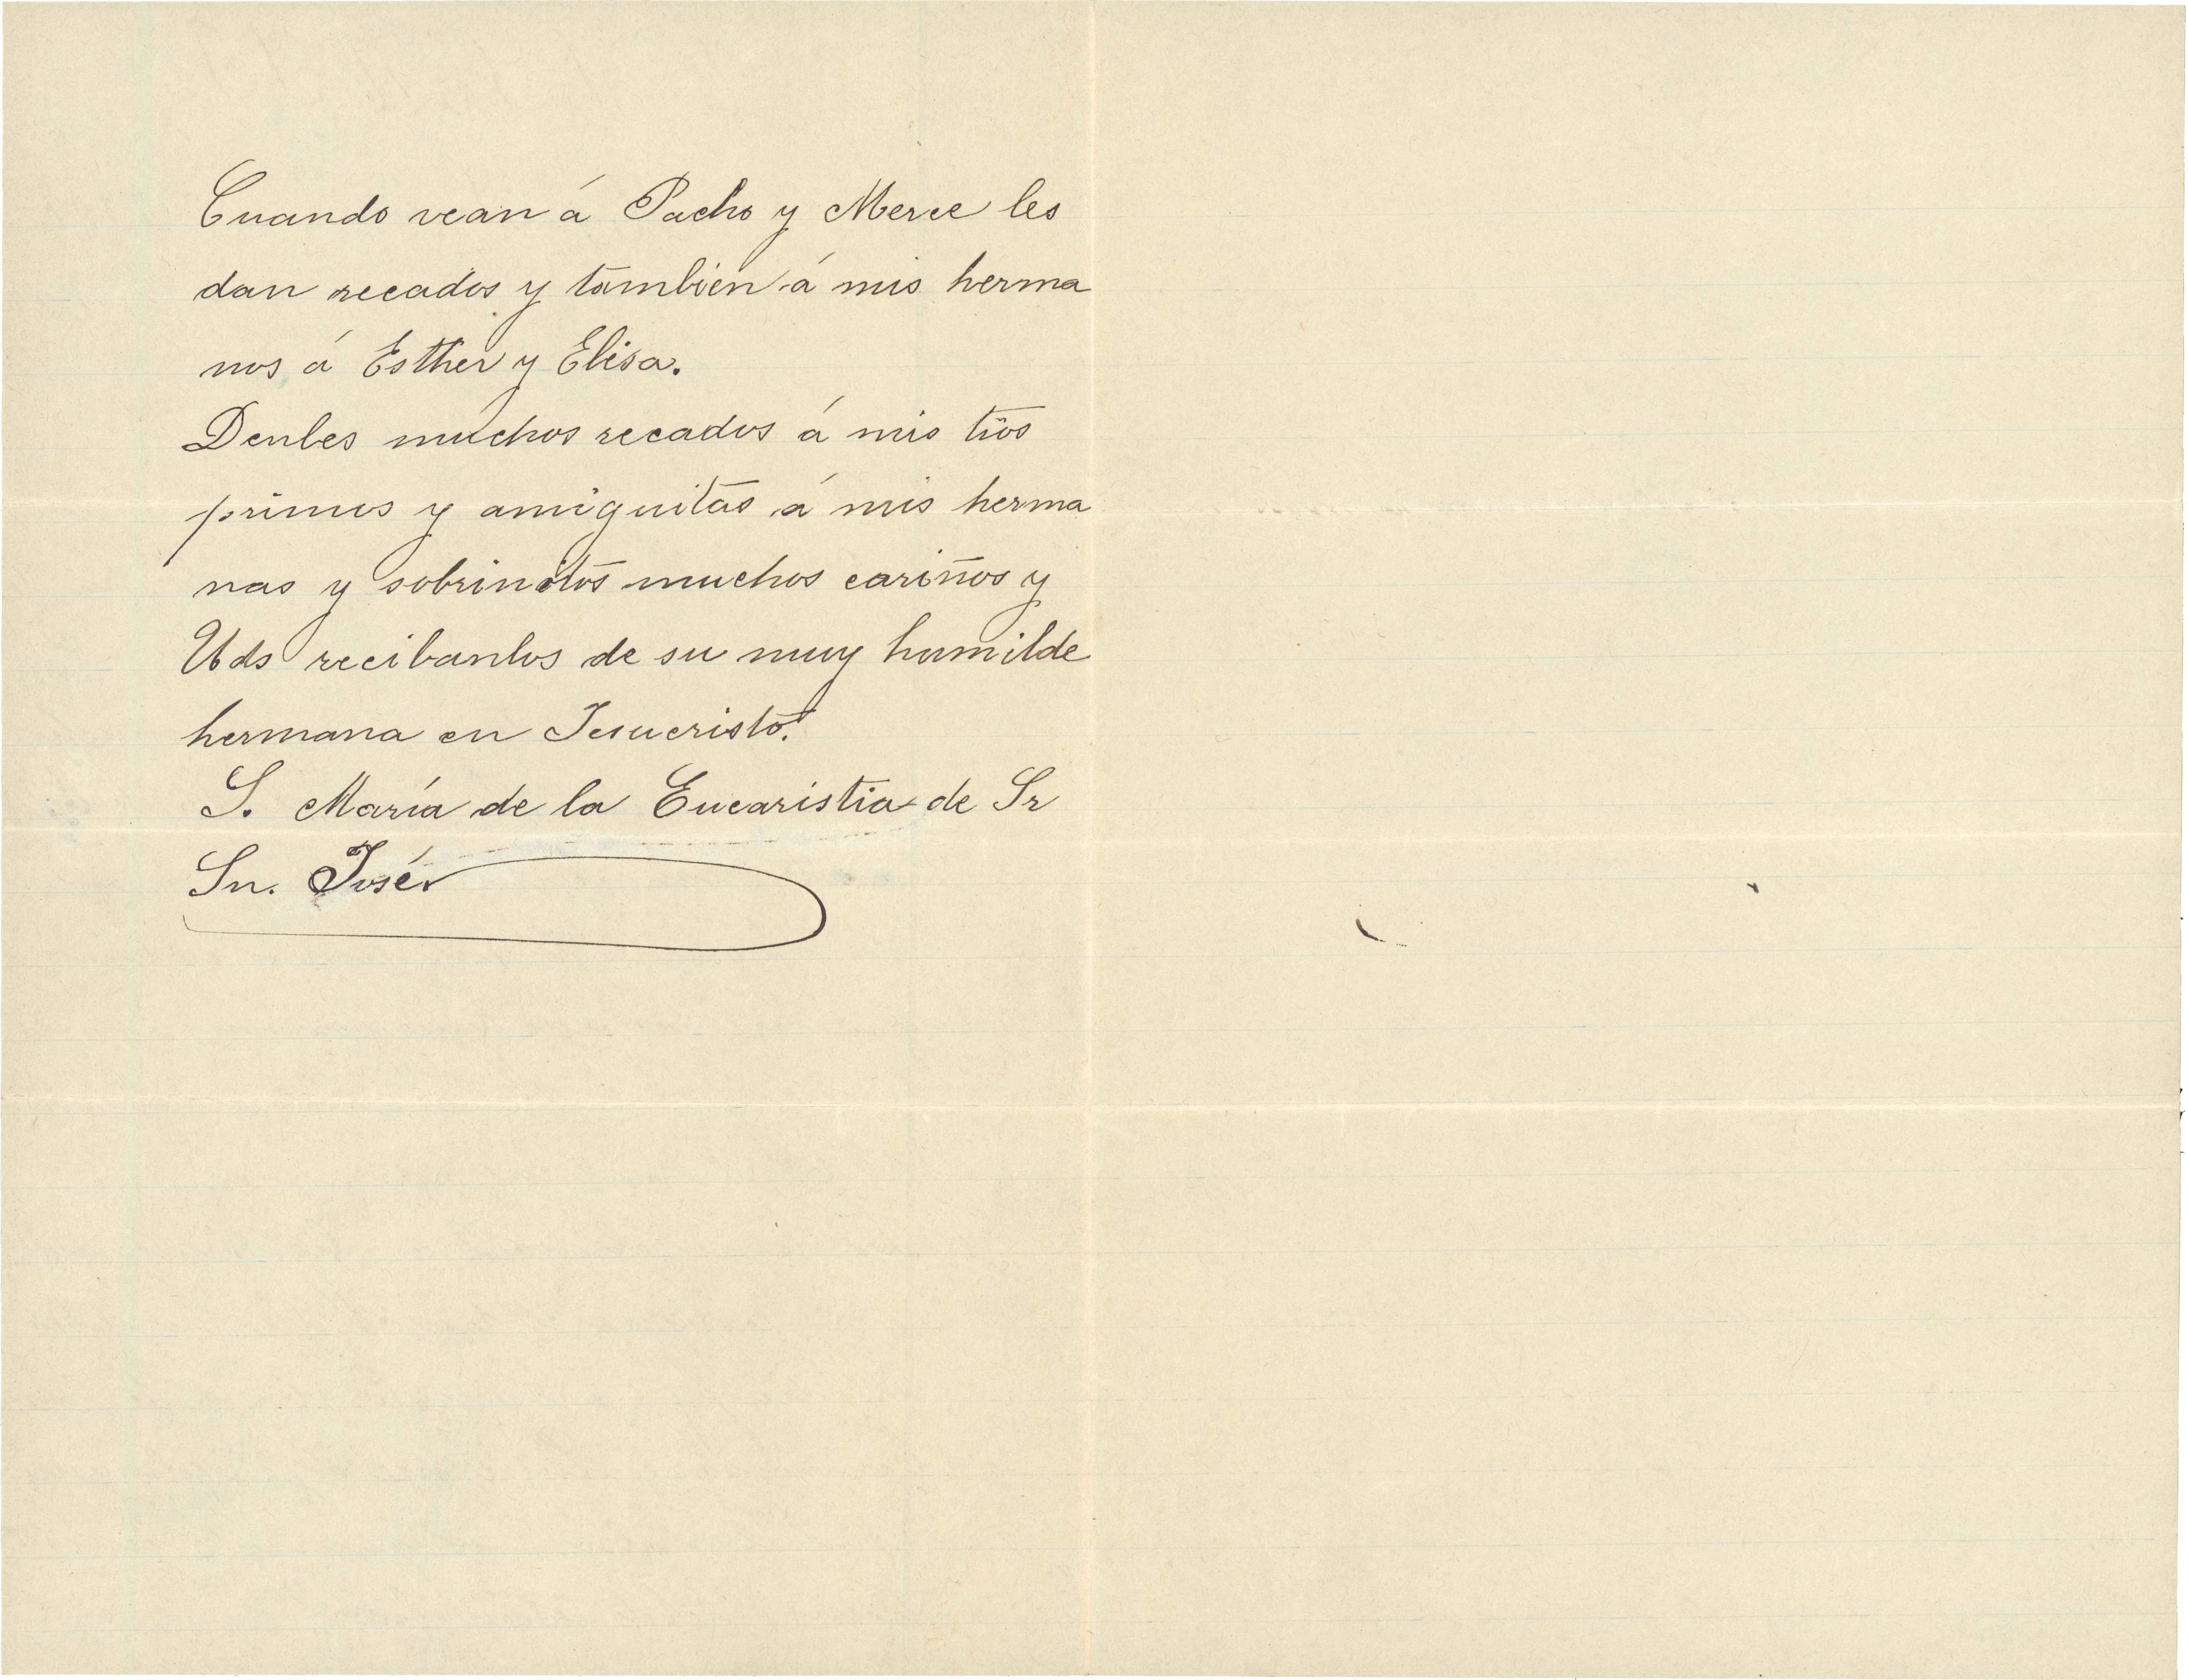 Cuando vean á Pacho y Merce les
dan recados y tambien á mis herma
nos á Esther y Elisa.
Denles muchos recados á mis tios
primos y amiguitas á mis herma
nas y sobrinitos muchos cariños y
Uds recibanlos de su muy humilde
hermana en Jesucristo.
S. María de la Eucaristia de Sr
Sn. José